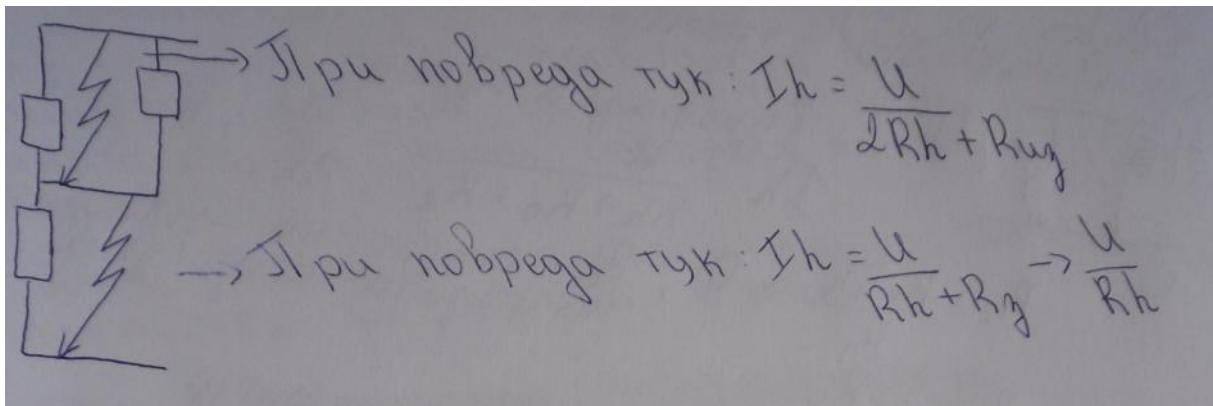 При повреда тук: Ih = U / 2Rh + Rиз
При повреда тук: Ih = U / Rh + Rз → U / Rh